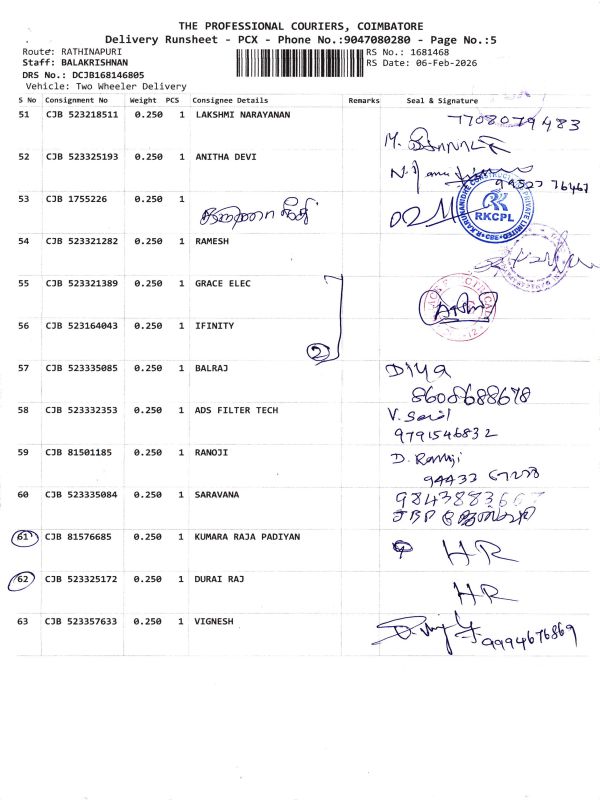 THE PROFESSIONAL COURIERS, COIMBATORE
Delivery Runsheet - PCX - Phone No.:9047080280 - Page No.:5
Route: RATHINAPURI RS No.: 1681468
Staff: BALAKRISHNAN RS Date: 06-Feb-2026
DRS No.: DCJB168146805
Vehicle: Two Wheeler Delivery
S No Consignment No Weight PCS Consignee Details Remarks Seal & Signature
51 CJB 523218511 0.250 1 LAKSHMI NARAYANAN 7708079483
52 CJB 523325193 0.250 1 ANITHA DEVI
53 CJB 1755226 0.250 1
RKCPL
54 CJB 523321282 0.250 1 RAMESH
55 CJB 523321389 0.250 1 GRACE ELEC
56 CJB 523164043 0.250 1 IFINITY
2
57 CJB 523335085 0.250 1 BALRAJ Diya
8608688678
58 CJB 523332353 0.250 1 ADS FILTER TECH V.
9791546832
59 CJB 81501185 0.250 1 RANOJI D. Ranoji
60 CJB 523335084 0.250 1 SARAVANA 9843883667
61 CJB 81576685 0.250 1 KUMARA RAJA PADIYAN HR
62 CJB 523325172 0.250 1 DURAI RAJ HR
63 CJB 523357633 0.250 1 VIGNESH 9994676869